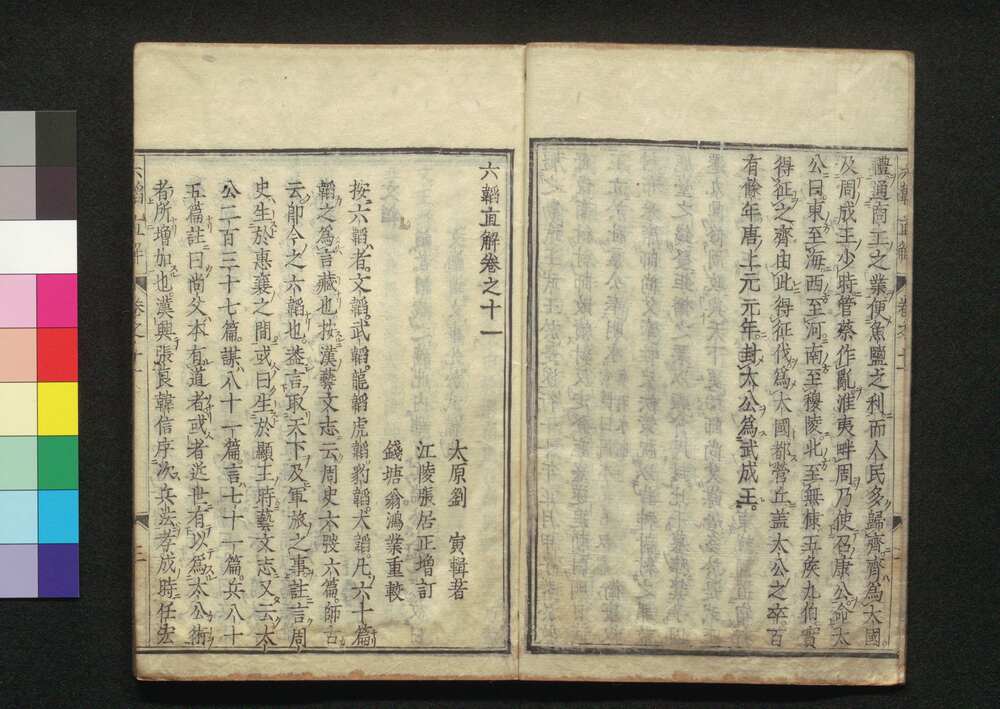 禮通商工之業便魚鹽之利而人民多歸齊齊爲大國
及周成王少時管蔡作亂淮夷畔周乃使召康公命太
公曰東至海西至河南至穆陵北至無棣五侯九伯實
得征之齊由此得征伐爲大國都營丘蓋太公之卒百
有餘年唐上元元年封太公爲武成王
六韜直解卷之十一
太原劉　寅輯著
江陵張居正增訂
錢塘翁鴻業重較
按六韜者文韜武韜龍韜虎韜豹韜犬韜凡六十篇
韜之爲言藏也按漢藝文志云周史六弢六篇師古
云卽今之六韜也蓋言取天下及軍旅之事註言周
史生於惠襄之間或曰生於顯王時藝文志又云太
公二百三十七篇謀八十一篇言七十一篇兵八十
五篇註曰尚父本有道者或者近世有以爲太公術
者所增加也漢興張良韓信序次兵法孝成時任宏
六韜直解　卷之十一